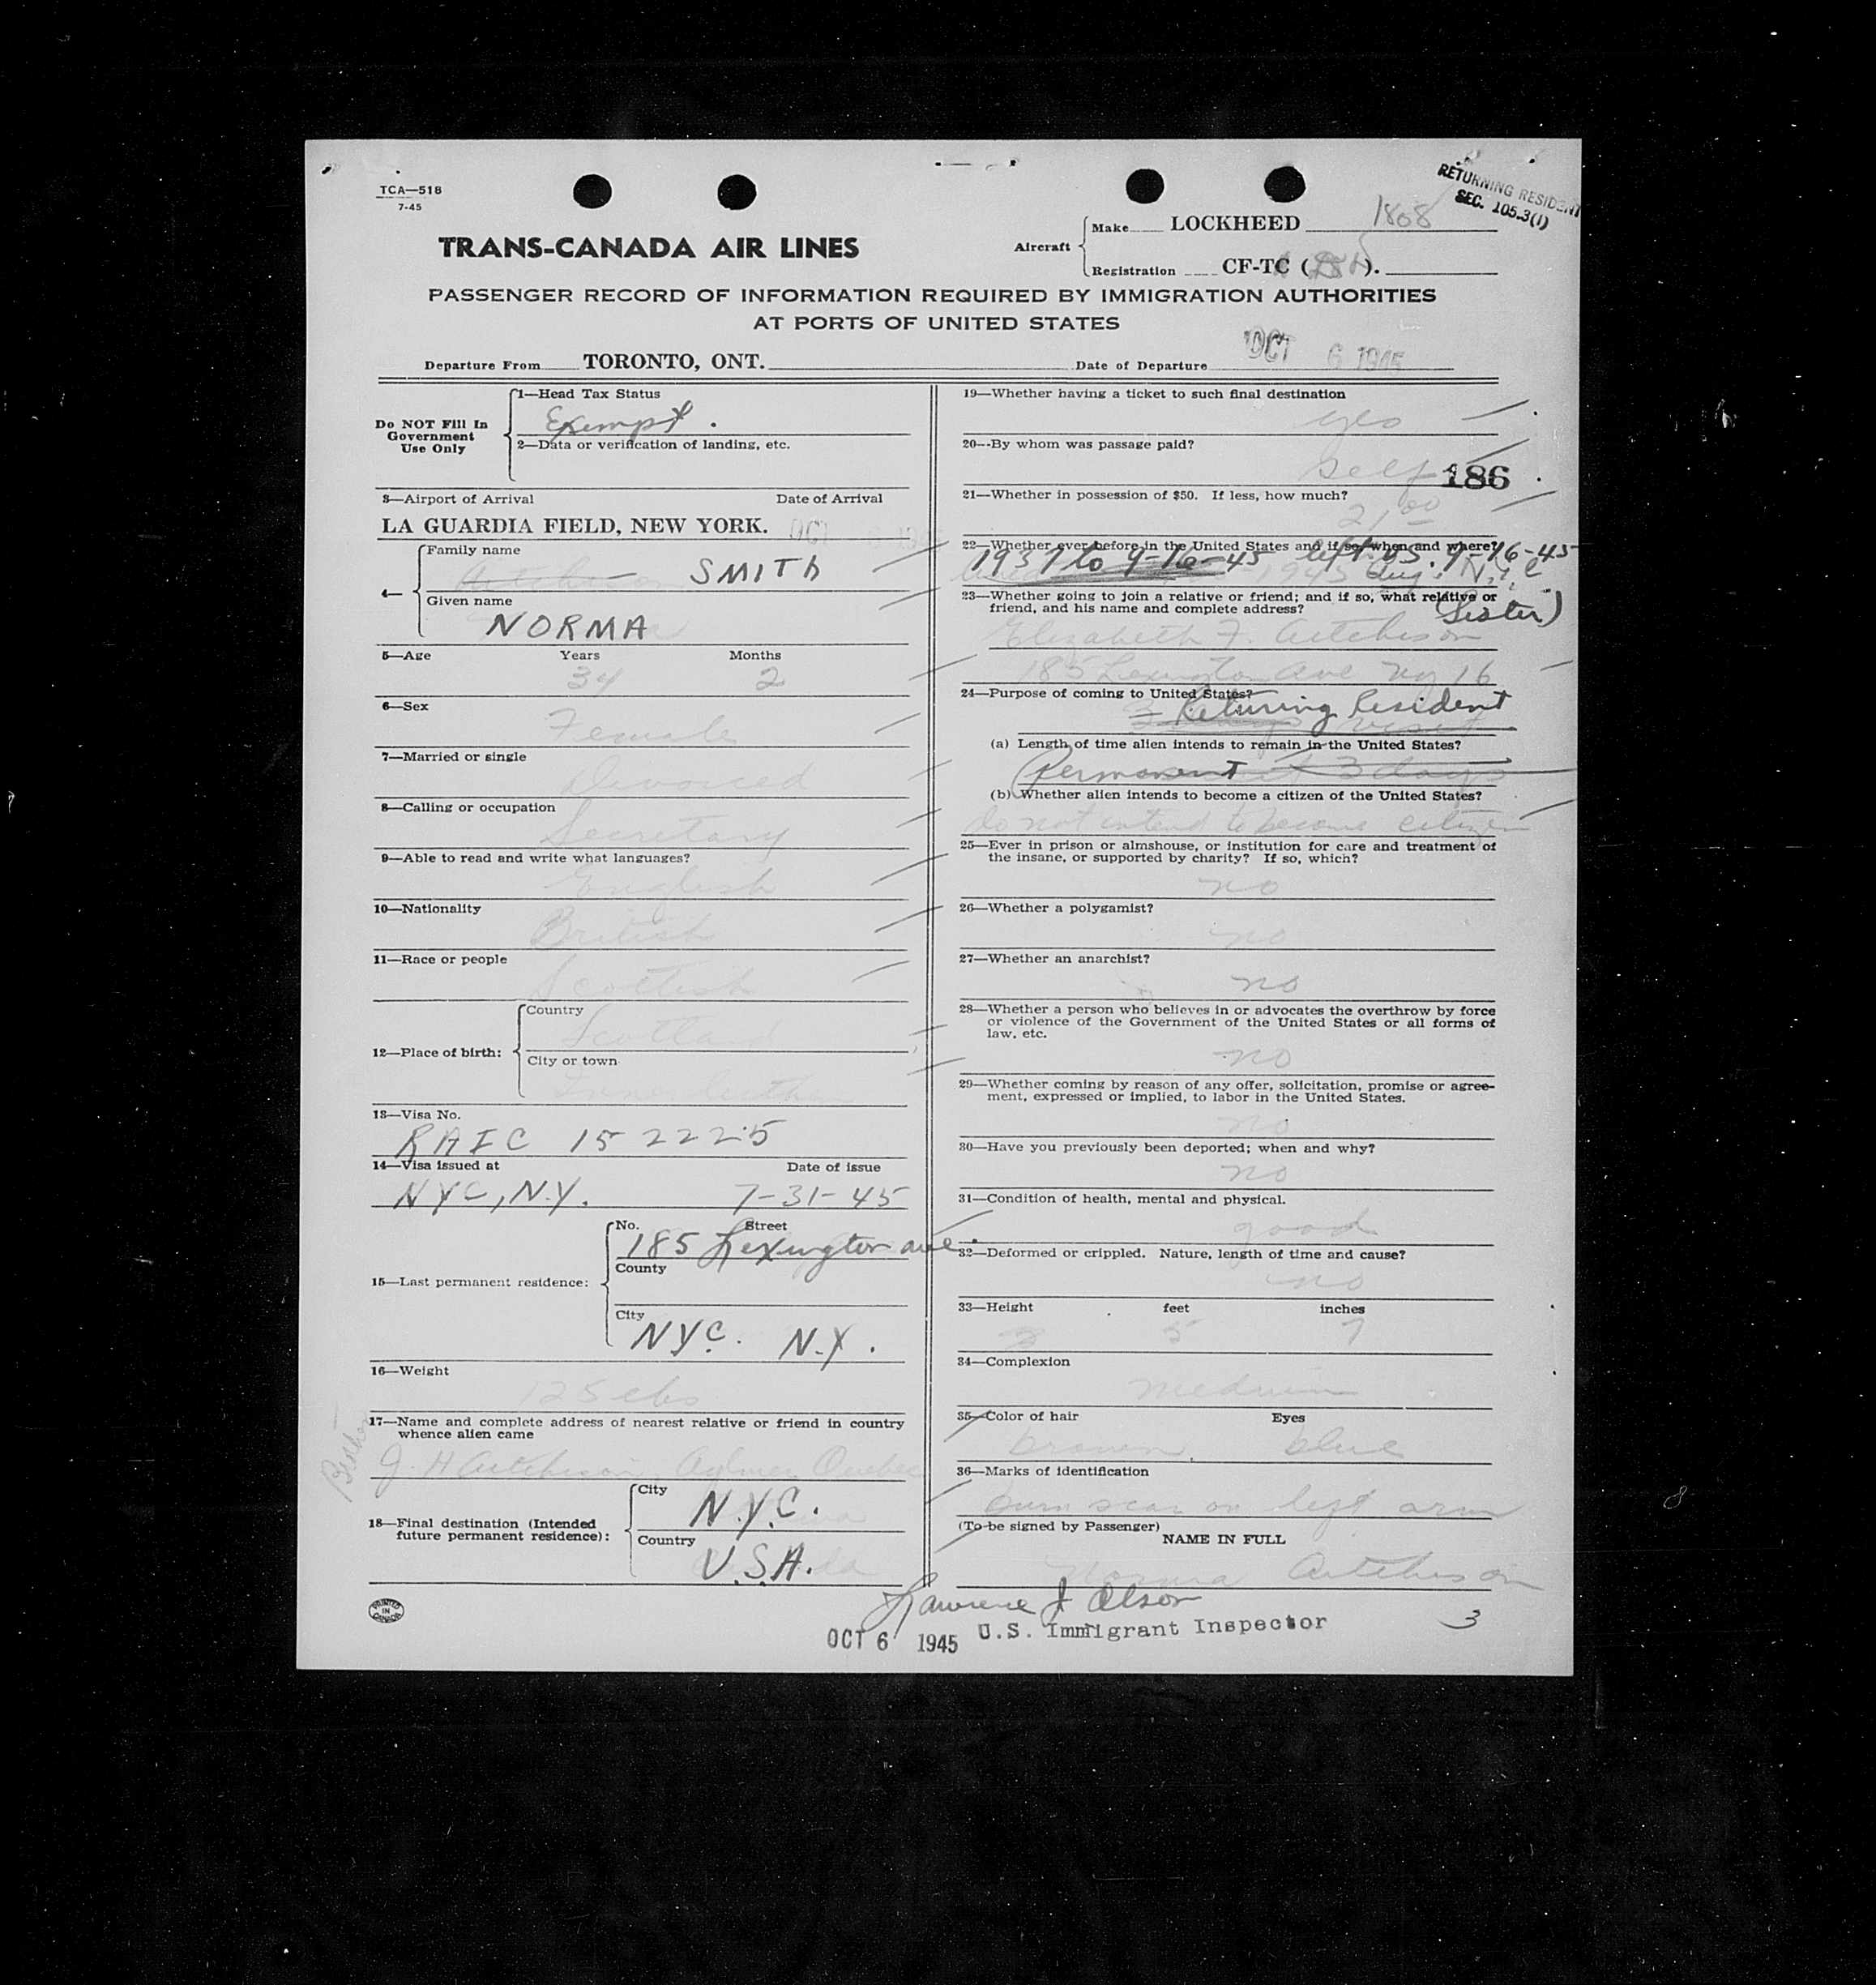 TCA—518
7-45
RETURNING RESIDENT
SEC. 105.3(1)
TRANS-CANADA AIR LINES
Aircraft
Make LOCKHEED 1808
Registration CF-TC ( ).
PASSENGER RECORD OF INFORMATION REQUIRED BY IMMIGRATION AUTHORITIES
AT PORTS OF UNITED STATES
Departure From TORONTO, ONT. Date of Departure OCT 6 1945
Do NOT Fill In
Government
Use Only
1—Head Tax Status
Exempt.
2—Data or verification of landing, etc.
3—Airport of Arrival Date of Arrival
LA GUARDIA FIELD, NEW YORK. OCT 6 1945
4—
Family name
Aitchison SMITH
Given name
NORMA
5—Age Years Months
34 2
6—Sex
Female
7—Married or single
Divorced
8—Calling or occupation
Secretary
9—Able to read and write what languages?
English
10—Nationality
British
11—Race or people
Scottish
12—Place of birth:
Country
Scotland
City or town
13—Visa No.
RAIC 152225
14—Visa issued at Date of issue
NYC, N.Y. 7-31-45
15—Last permanent residence:
No. Street
185 Lexington ave.
County
City
NYC. N.Y.
16—Weight
125 lbs
17—Name and complete address of nearest relative or friend in country
whence alien came
Brother
J. H Aitchison Aylmer Quebec
18—Final destination (Intended
future permanent residence):
City
N.Y.C.
Country
U.S.A.
19—Whether having a ticket to such final destination
yes
20—By whom was passage paid?
self 186
21—Whether in possession of $50. If less, how much?
21.00
22—Whether ever before in the United States and if so, when and where?
1937 to 9-16-45 left U.S. 9-16-45
1945 Aug. N.Y.C
23—Whether going to join a relative or friend; and if so, what relative or
friend, and his name and complete address?
(Sister)
Elizabeth F. Aitchison
185 Lexington Ave NY 16
24—Purpose of coming to United States?
Returing Resident
visit
(a) Length of time alien intends to remain in the United States?
Permanent 3 days
(b) Whether alien intends to become a citizen of the United States?
do not intend to become citizen
25—Ever in prison or almshouse, or institution for care and treatment of
the insane, or supported by charity? If so, which?
no
26—Whether a polygamist?
no
27—Whether an anarchist?
no
28—Whether a person who believes in or advocates the overthrow by force
or violence of the Government of the United States or all forms of
law, etc.
no
29—Whether coming by reason of any offer, solicitation, promise or agree-
ment, expressed or implied, to labor in the United States.
no
30—Have you previously been deported; when and why?
no
31—Condition of health, mental and physical.
good
32—Deformed or crippled. Nature, length of time and cause?
no
33—Height feet inches
5 7
34—Complexion
medium
35—Color of hair Eyes
brown blue
36—Marks of identification
burn scar on left arm
(To be signed by Passenger)
NAME IN FULL
Norma Aitchison
PRINTED IN CANADA
Lawrence J Olson
OCT 6 1945 U.S. Immigrant Inspector
3